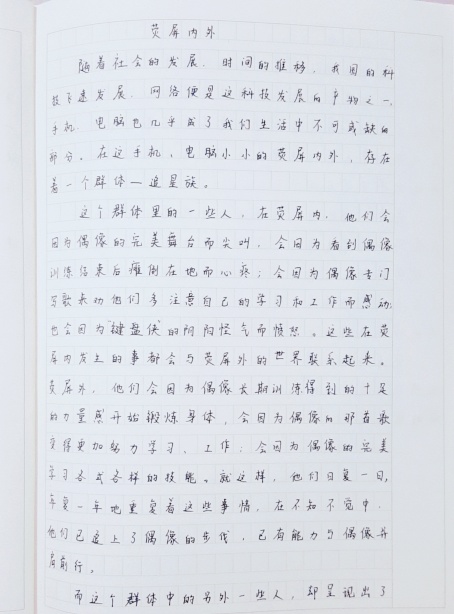 荧屏内外
随着社会的发展、时间的推移，我国的科
技飞速发展，网络便是这科技发展的产物之一，
手机、电脑也几乎成了我们生活中不可或缺的
部分。在这手机、电脑小小的荧屏内外，存在
着一个群体—追星族。
这个群体里的一些人，在荧屏内，他们会
因为偶像的完美舞台而尖叫，会因为看到偶像
训练结束后瘫倒在地而心疼；会因为偶像专门
写歌来劝他们多注意自己的学习和工作而感动；
也会因为“键盘侠”的阴阳怪气而愤怒。这些在荧
屏内发生的事都会与荧屏外的世界联系起来。
荧屏外，他们会因为偶像长期训练得到的十足
的力量感开始锻炼身体，会因为偶像的那首歌
变得更加努力学习、工作；会因为偶像的完美
学习各式各样的技能。就这样，他们日复一日，
年复一年地重复着这些事情，在不知不觉中，
他们已追上了偶像的步伐，已有能力与偶像并
肩前行。
而这个群体中的另外一些人，却呈现出了